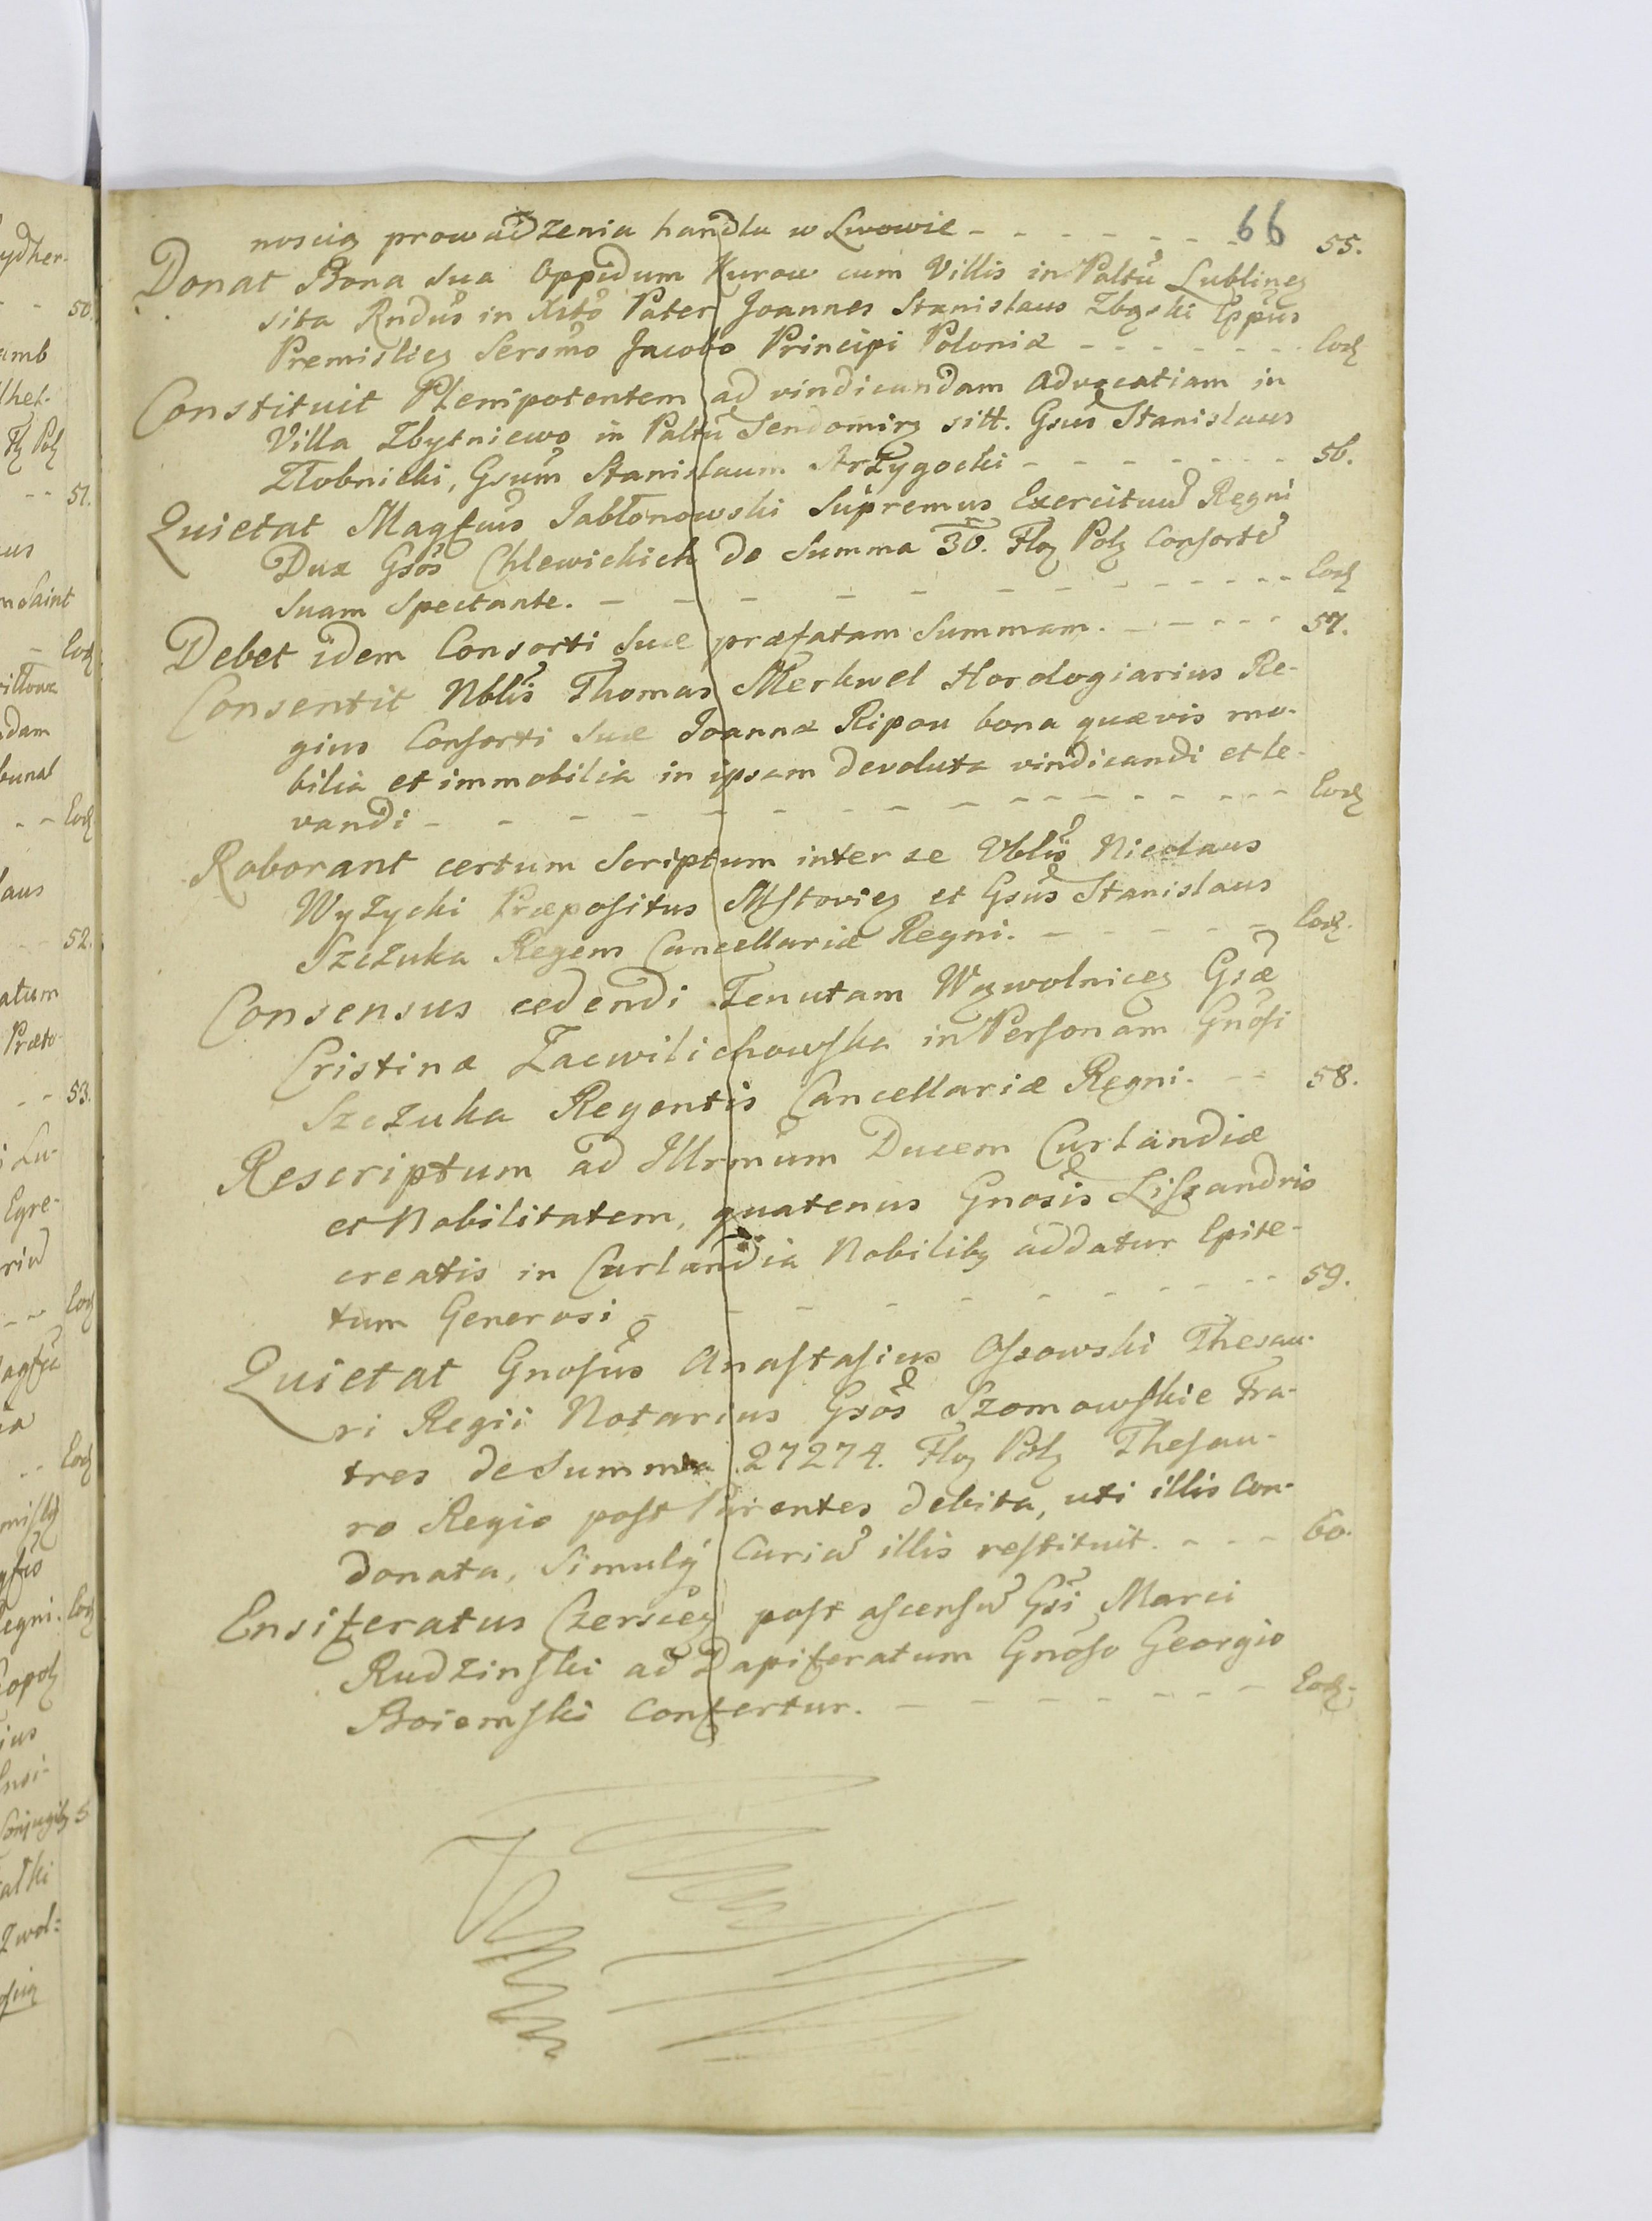 66
noscią prowadzenia handlu w Lwowie - - - - - - - - 55.
Donat Bona sua Oppidum Kurow cum Villis in Paltu Lublineȝ
sita Rndus in Xsto Pater Joannes Stanislaus Zbąski Eppus
Premisliеȝ Sersmo Jacobo Principi Poloniæ - - - - - - - Eodȝ
Constituit Plenipotentem ad vindicandam Advocatiam in
Villa Zbytniewo in Paltu Sendomirȝ sitt. Gsus Stanislaus
Złobnicki, Gsum Stanislaum Strzygocki - - - - - - - 56.
Quietat Magfcus Jabłonowski Supremus Exercituu Regni
Dux Gsos Chlewickich de Summa 30. Floȝ Polȝ Consorte
suam spectante. - - - - - - - - - - - - Eodȝ
Debet idem Consorti suæ præfatam summam. - - - - - 57.
Consentit Nblis Thomas Merkwel Horologiarius Re-
gius Consorti suæ Joannæ Ripou bona quævis mo-
bilia et immobilia in ipsam devoluta vindicandi et le-
vandi - - - - - - - - - - - - - - Eodȝ
Roborant certum scriptum inter se Vblis Nicolaus
Wyżycki Præpositus Mstovieȝ et Gsus Stanislaus
Szczuka Regem Cancellariæ Regni. - - - - - Eodȝ.
Consensus cedendi Tenutam Wywolniceȝ Gsæ
Cristinæ Zacwilichowska in Personam Gnosi
Szczuka Regentis Cancellariæ Regni. - - 58.
Rescriptum ad Illrmum Ducem Curlandiæ
et Nobilitatem, quatenus Gnosis Liszandris
creatis in Curlandia Nobilibȝ addatur Epite-
tum Generosi - - - - - - - - - - 59.
Quietat Gnosus Anastasius Ossowski Thesau-
ri Regii Notarius Gsos Szomowskie Fra-
tres de summa 27274. Floȝ Polȝ Thesau-
ro Regio post Parentes debita, uti illis con-
donata, simulq Curiam illis restituit. - - - 60.
Ensiferatus Czersceȝ post ascensu Gsi Marci
Rudzinski ad Dapiferatum Gnoso Georgio
Boiemski confertur. - - - - - - - Eodȝ.